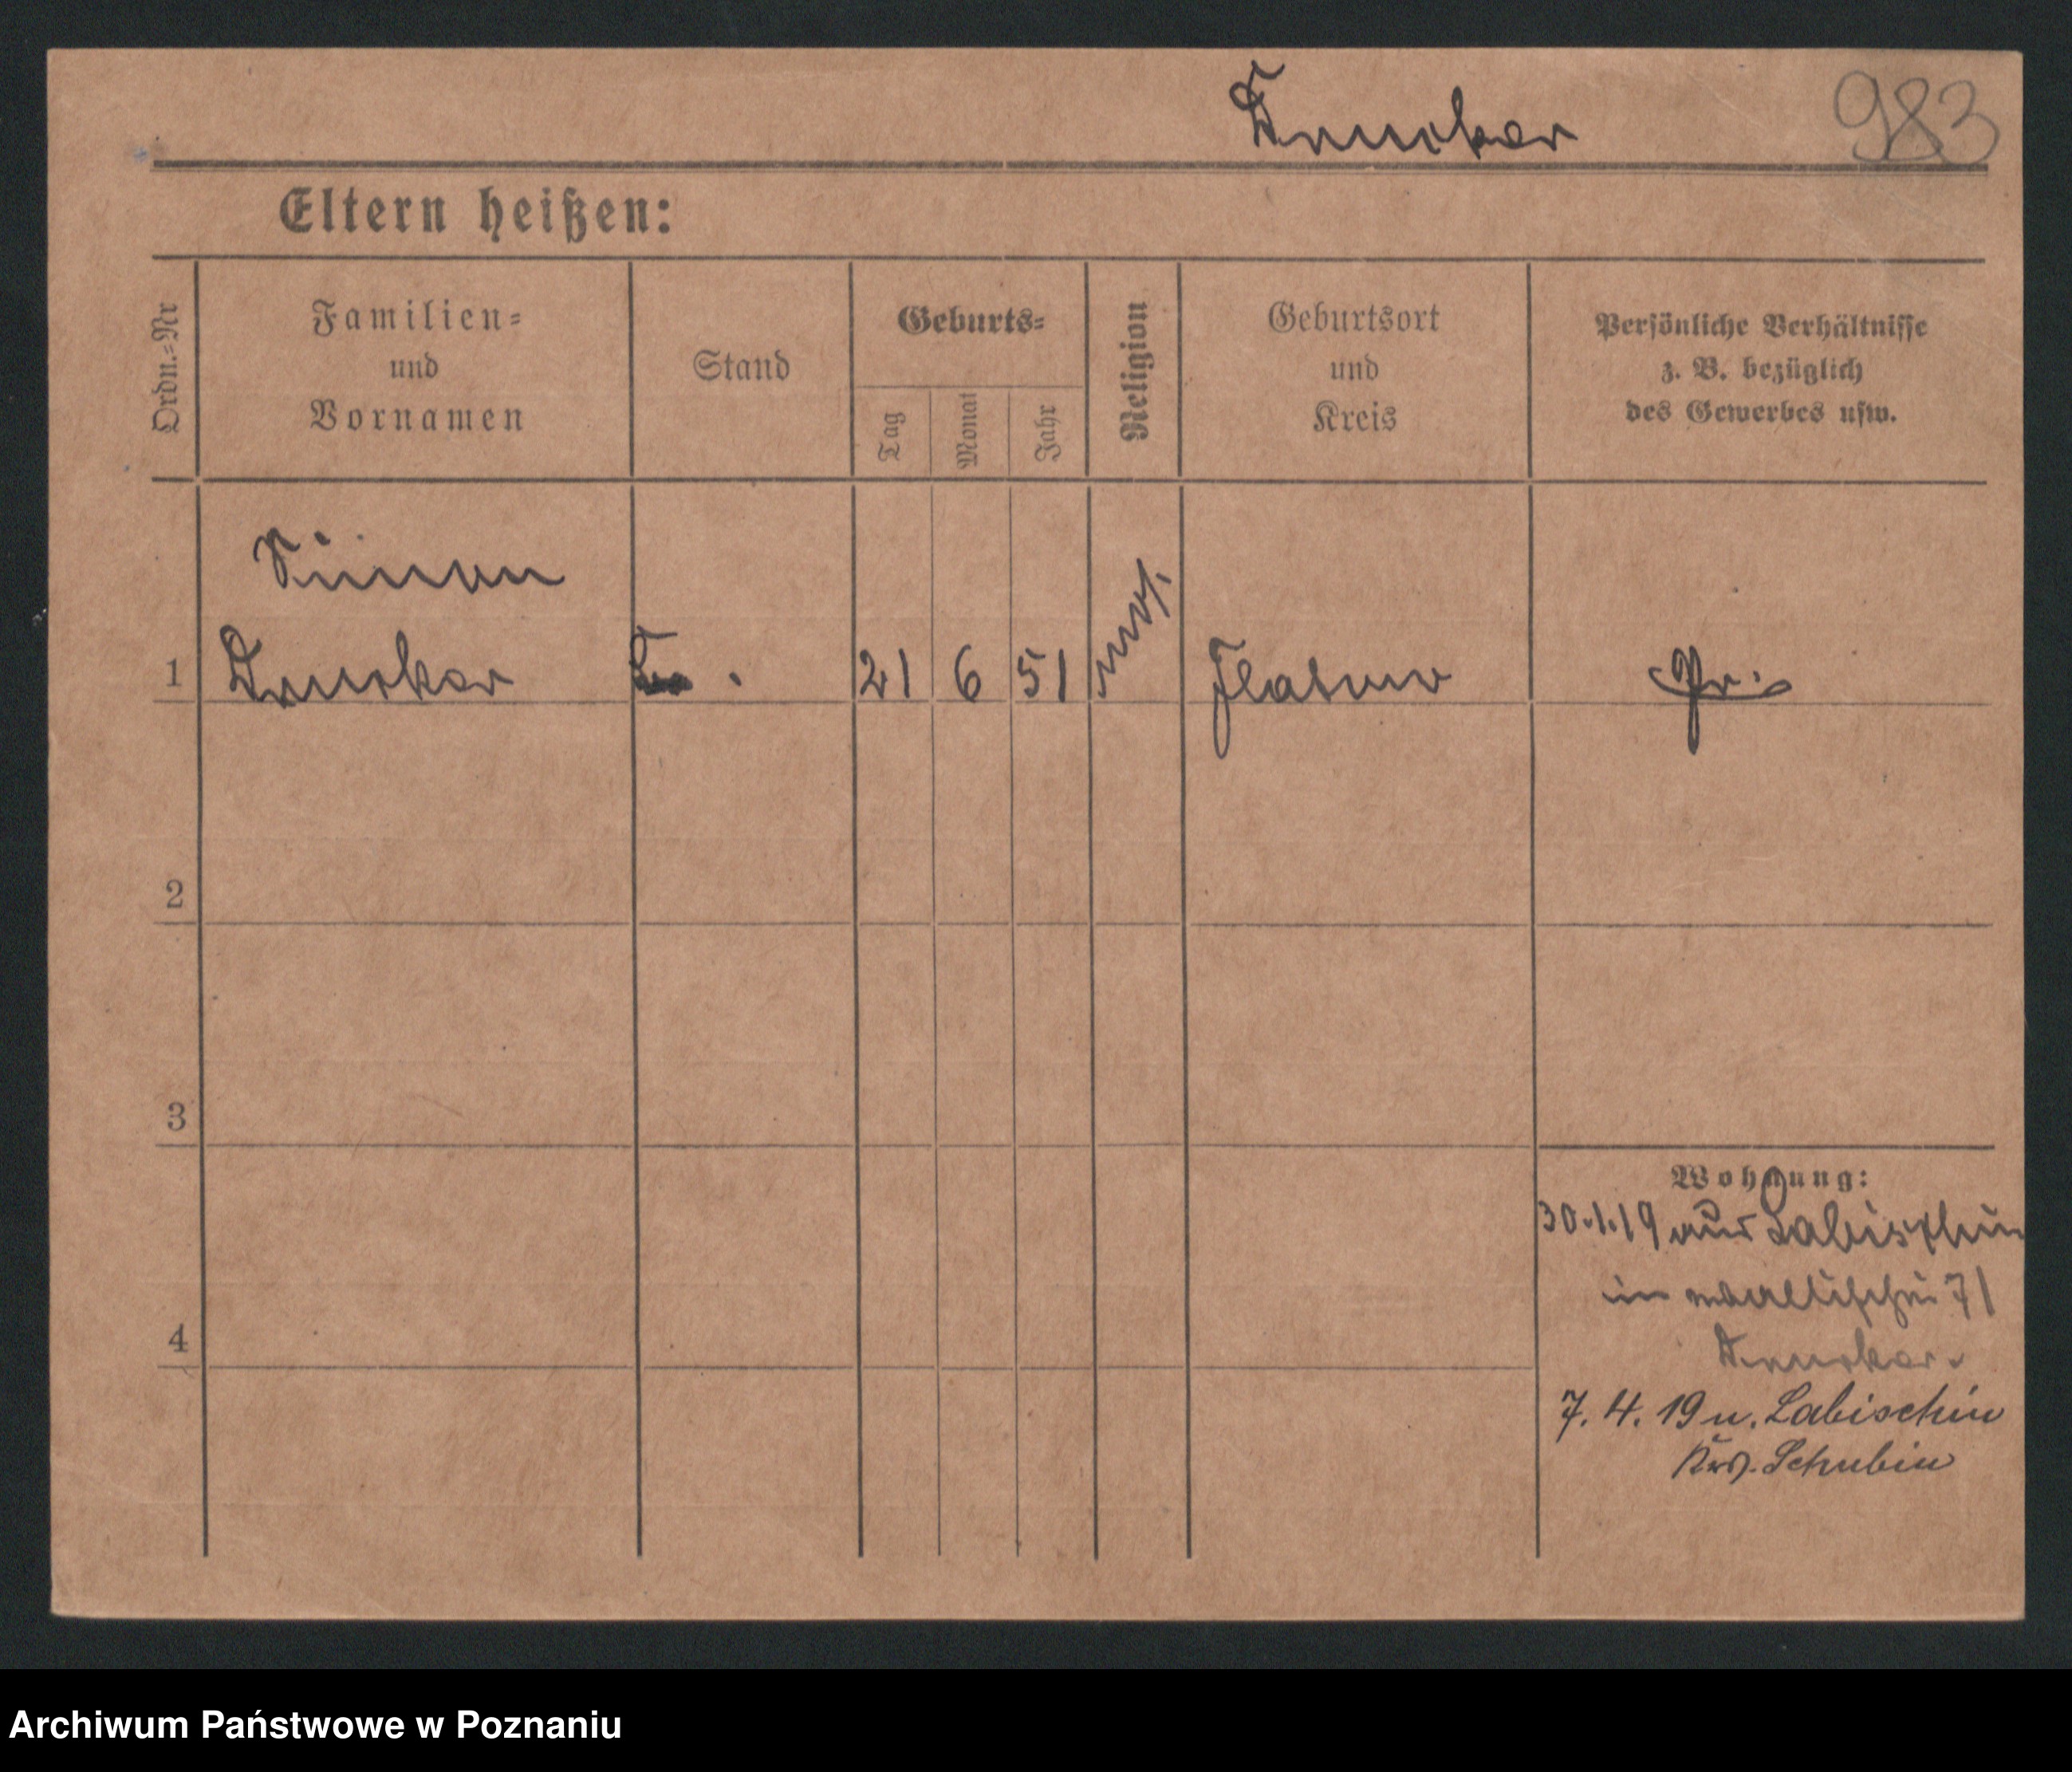 Drucker 983
Eltern heißen:
Ordn.=Nr
Familien=
und
Vornamen
Stand
Geburts=
Tag
Monat
Jahr
Religion
Geburtsort
und
Kreis
Persönliche Verhältnisse
z. B. bezüglich
des Gewerbes usw.
Simon
1 Drucker 21 6 51 mos. Flatow Pr.
2
3
4
Wohnung:
30.1.19 aus Labischin
71
Drucker.
7. 4. 19 n. Labischin
Krs. Schubin
Archiwum Państwowe w Poznaniu